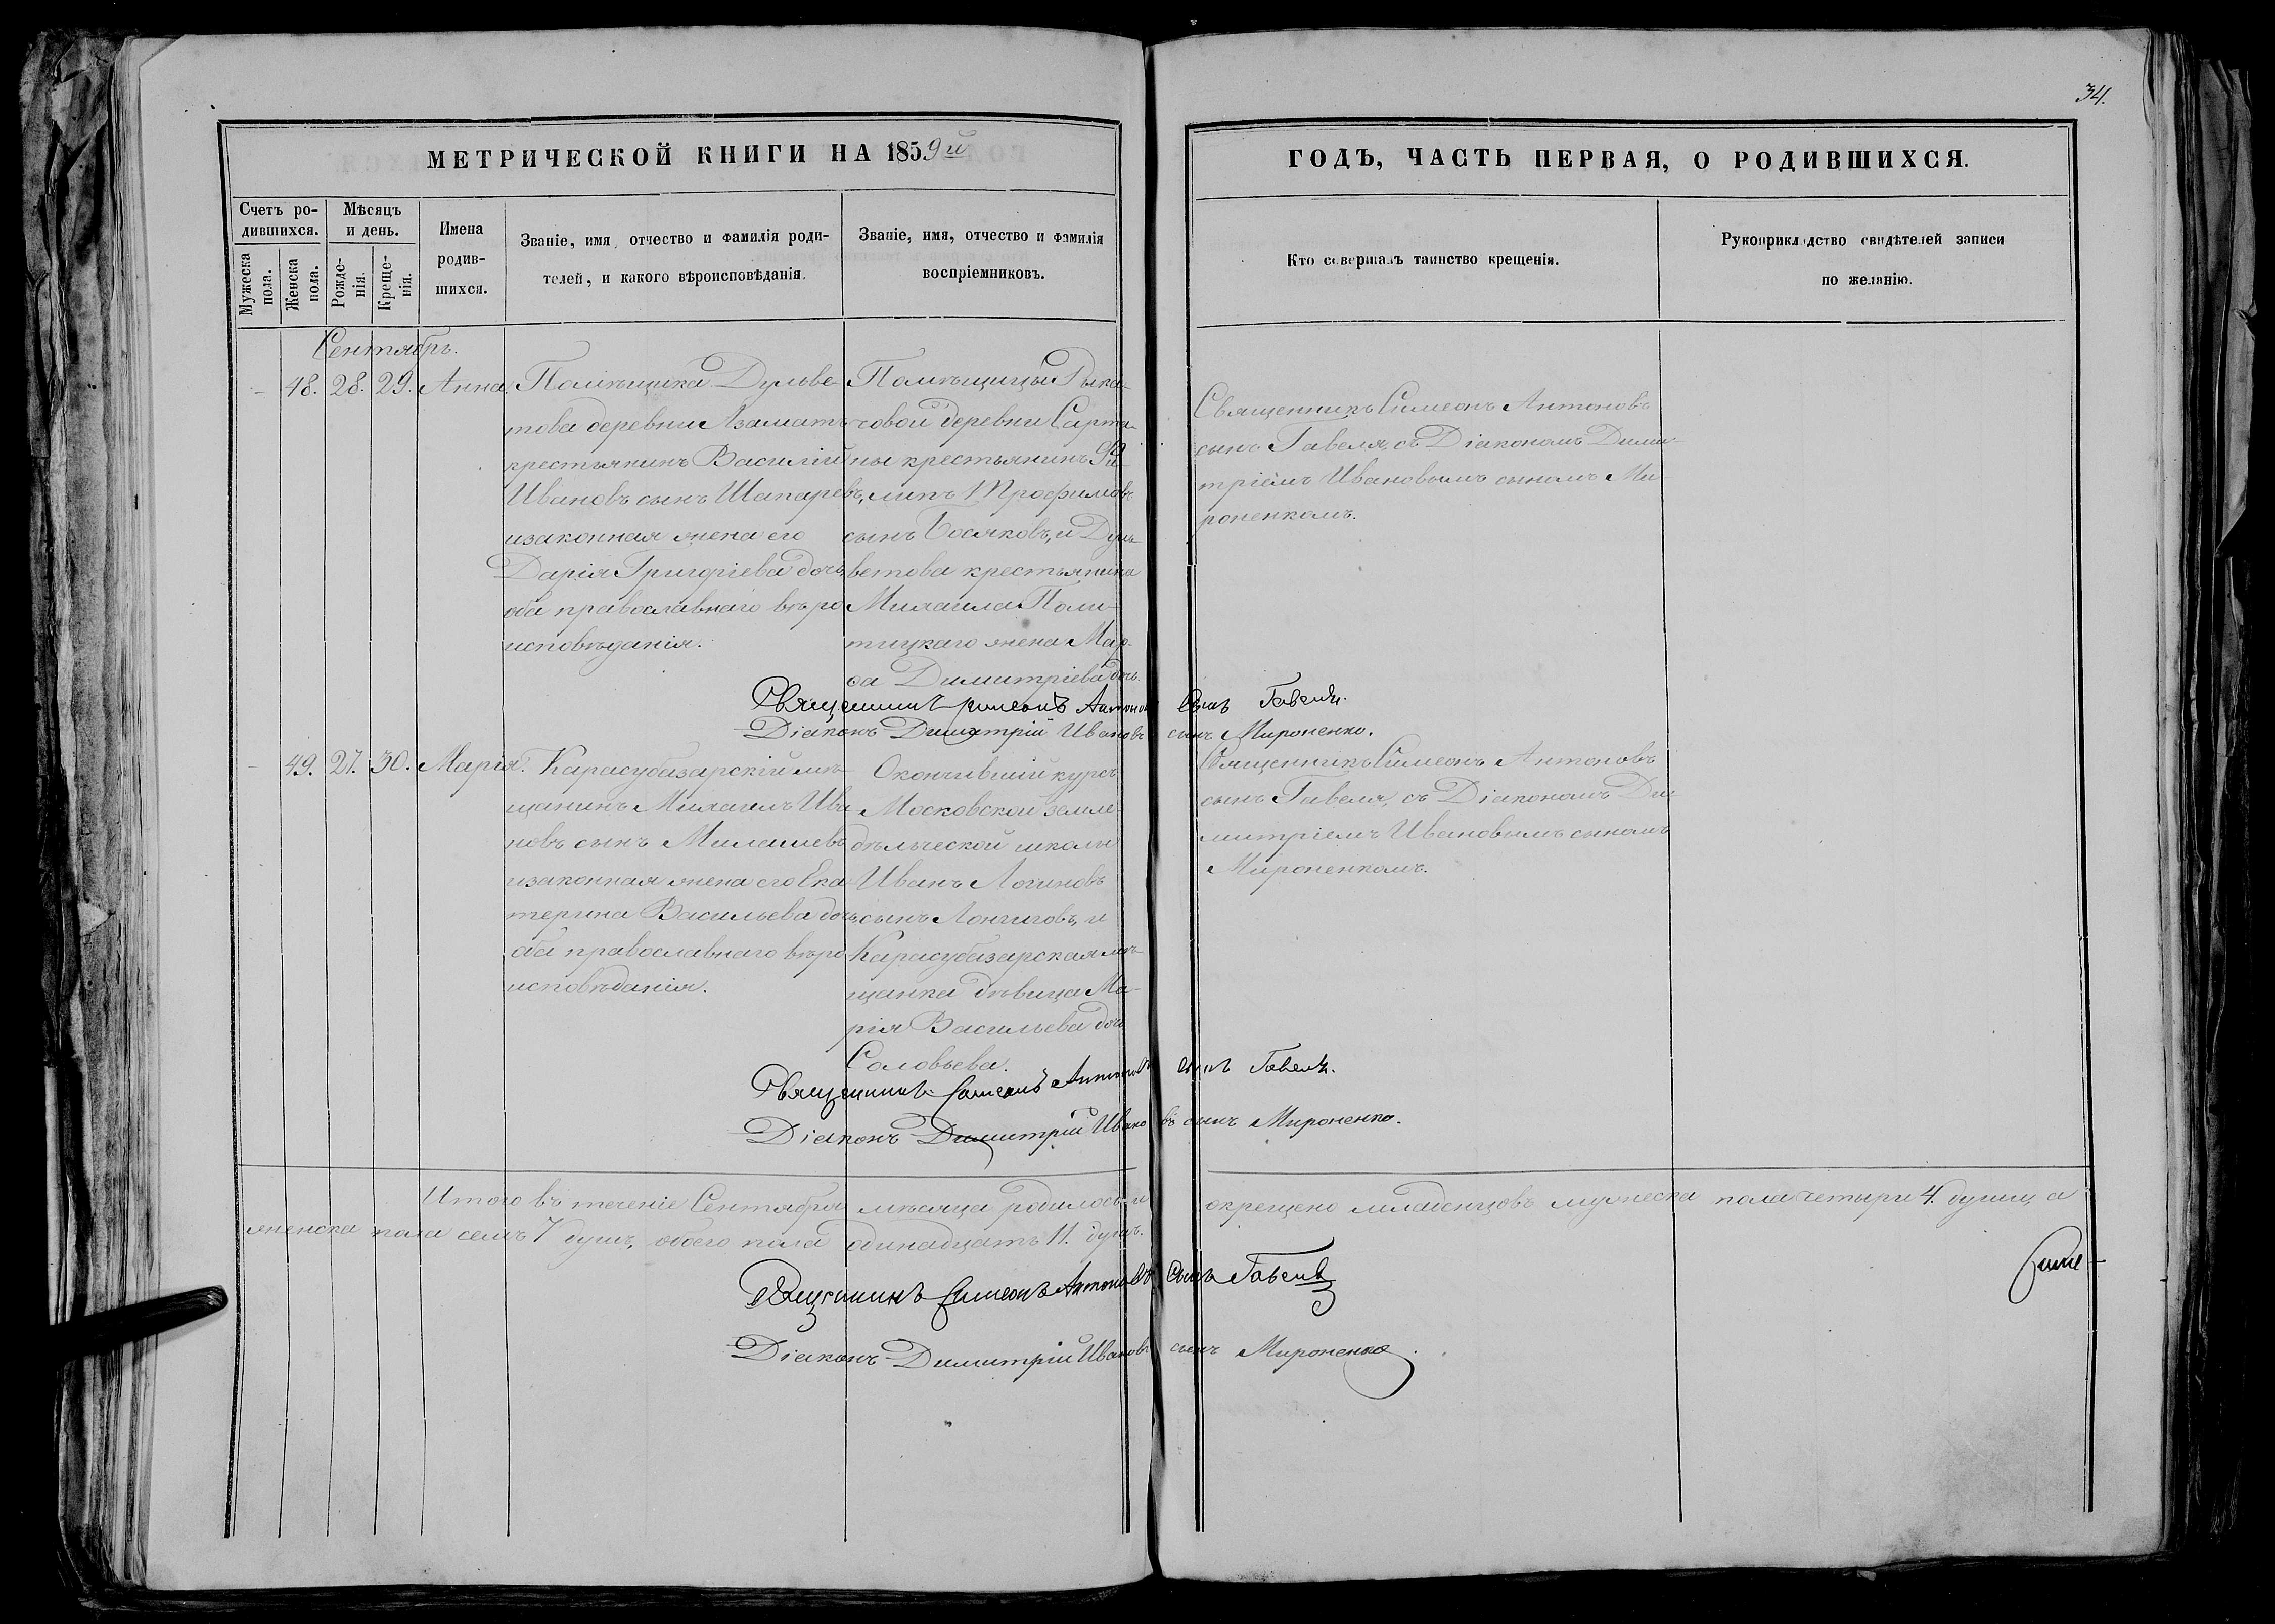 34.
МЕТРИЧЕСКОЙ КНИГИ НА 1859й
ГОДЪ, ЧАСТЬ ПЕРВАЯ, О РОДИВШИХСЯ.
Счетъ ро-
дившихся.
Мужеска
пола.
Женска
пола.
Мѣсяцъ
и день.
Рожде-
нія.
Креще-
нія.
Имена
родив-
шихся.
Званіе, имя, отчество и фамилія роди-
телей, и какого вѣроисповѣданія.
Званіе, имя, отчество и фамилія
воспріемниковъ.
Кто совершалъ таинство крещенія.
Рукоприкладство свидѣтелей записи
по желанію.
Сентябрь.
48. 28. 29. Анна.
Помѣщика Дульве-
това деревни Азаматъ
крестьянинъ Василій
Ивановъ сынъ Шапаревъ,
изаконная жена его
Дарія Григоріева дочь,
оба православнаго вѣро
исповѣданія.
Помѣщицы Рыка-
човой деревни Сарта-
ны крестьянинъ Фи-
липъ Трофимовъ
сынъ Босяковъ, и Дуль-
ветова крестьянина
Михаила Поли-
тицкаго жена Мар-
ѳа Димитріева дочь.
Священникъ Симеонъ Антоновъ
сынъ Гавеля, съ Діакономъ Дими-
тріемъ Ивановымъ сыномъ Ми
роненкомъ.
Священникъ Симеонъ Антоновъ сынъ Гавеля.
Діаконъ Димитрій Ивановъ сынъ Мироненко.
49. 27. 30. Марія.
Карасубазарскій мѣ-
щанинъ Михаилъ Ива
новъ сынъ Милешевъ
изаконная жена его Ека
терина Васильева дочь,
оба православнаго вѣро
исповѣданія.
Окончившій курсъ
Московской земле-
дѣльческой школы
Иванъ Логиновъ
сынъ Лонгиговъ, и
Карасубазарская мѣ-
щанка дѣвица Ма-
рія Васильева дочь
Соловьева.
Священникъ Симеонъ Антоновъ
сынъ Гавеля, съ Діакономъ Ди-
митріемъ Ивановымъ сыномъ
Мироненкомъ.
Священникъ Симеонъ Антоновъ сынъ Гавеля.
Діаконъ Димитрій Ивановъ сынъ Мироненко.
Итого въ теченіе Сентября мѣсяца родилось и окрещено младенцовъ мужеска пола четыри 4. души, а
женска пола семъ 7 душъ, обоего пола одинадцать 11. душъ.
Священникъ Симеонъ Антоновъ сынъ Гавеля
Симе-
Діаконъ Димитрій Ивановъ сынъ Мироненко.